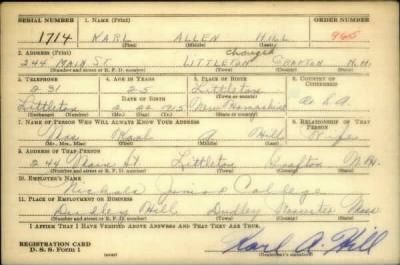 SERIAL NUMBER 1. NAME (Print) ORDER NUMBER
1714 KARL ALLEN HILL 965
(First) (Middle) (Last)
2. ADDRESS (Print) changed
244 MAIN ST LITTLETON GRAFTON N.H.
(Number and street or R. F. D. number) (Town) (County) (State)
3. TELEPHONE 4. AGE IN YEARS 5. PLACE OF BIRTH 6. COUNTRY OF CITIZENSHIP
231 25 Littleton
DATE OF BIRTH (Town or county)
Littleton 2 22 1915 New Hampshire U.S.A.
(Exchange) (Number) (Mo.) (Day) (Yr.) (State or country)
7. NAME OF PERSON WHO WILL ALWAYS KNOW YOUR ADDRESS 8. RELATIONSHIP OF THAT PERSON
Mrs Karl A Hill Wife
(Mr., Mrs., Miss) (First) (Middle) (Last)
9. ADDRESS OF THAT PERSON
244 Main St Littleton Grafton N.H.
(Number and street or R. F. D. number) (Town) (County) (State)
10. EMPLOYER'S NAME
Nichols Junior College
11. PLACE OF EMPLOYMENT OR BUSINESS
Dudley Hill Dudley Worcester Mass
(Number and street or R. F. D. number) (Town) (County) (State)
I AFFIRM THAT I HAVE VERIFIED ABOVE ANSWERS AND THAT THEY ARE TRUE.
REGISTRATION CARD
D. S. S. Form 1
Karl A. Hill
(Registrant's signature)